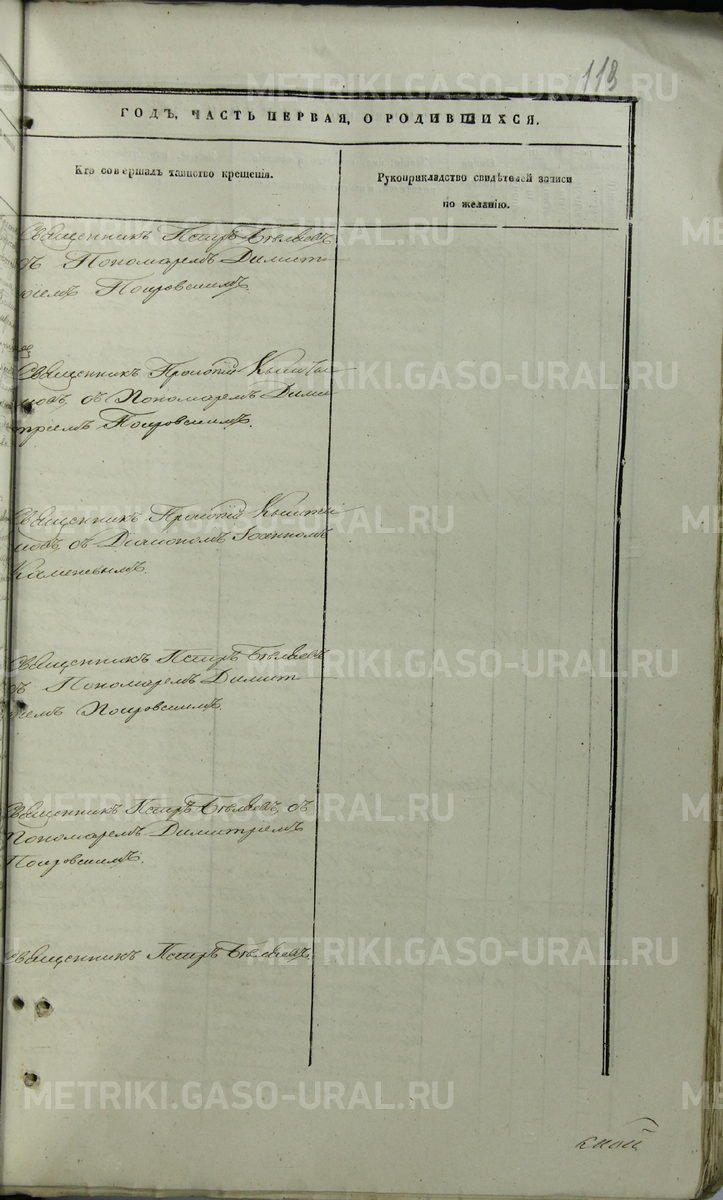 113
ГОДЪ, ЧАСТЬ ПЕРВАЯ, О РОДИВШИХСЯ.
Кто совершалъ таинство крещенія.
Рукоприкладство свидѣтелей записи
по желанію.
Священникъ Петръ Бѣляевъ
съ Пономаремъ Димит
ріемъ Покровскимъ.
Священникъ Прокопій
съ Пономаремъ Дими
тріемъ Покровскимъ.
Священникъ Прокопій
съ Діакономъ Іоанномъ
Каменевымъ.
Священникъ Петръ Бѣляевъ
съ Пономаремъ Димит
ріемъ Покровскимъ.
Священникъ Петръ Бѣляевъ, съ
Пономаремъ Димитріемъ
Покровскимъ.
Священникъ Петръ Бѣляевъ.
METRIKI.GASO-URAL.RU